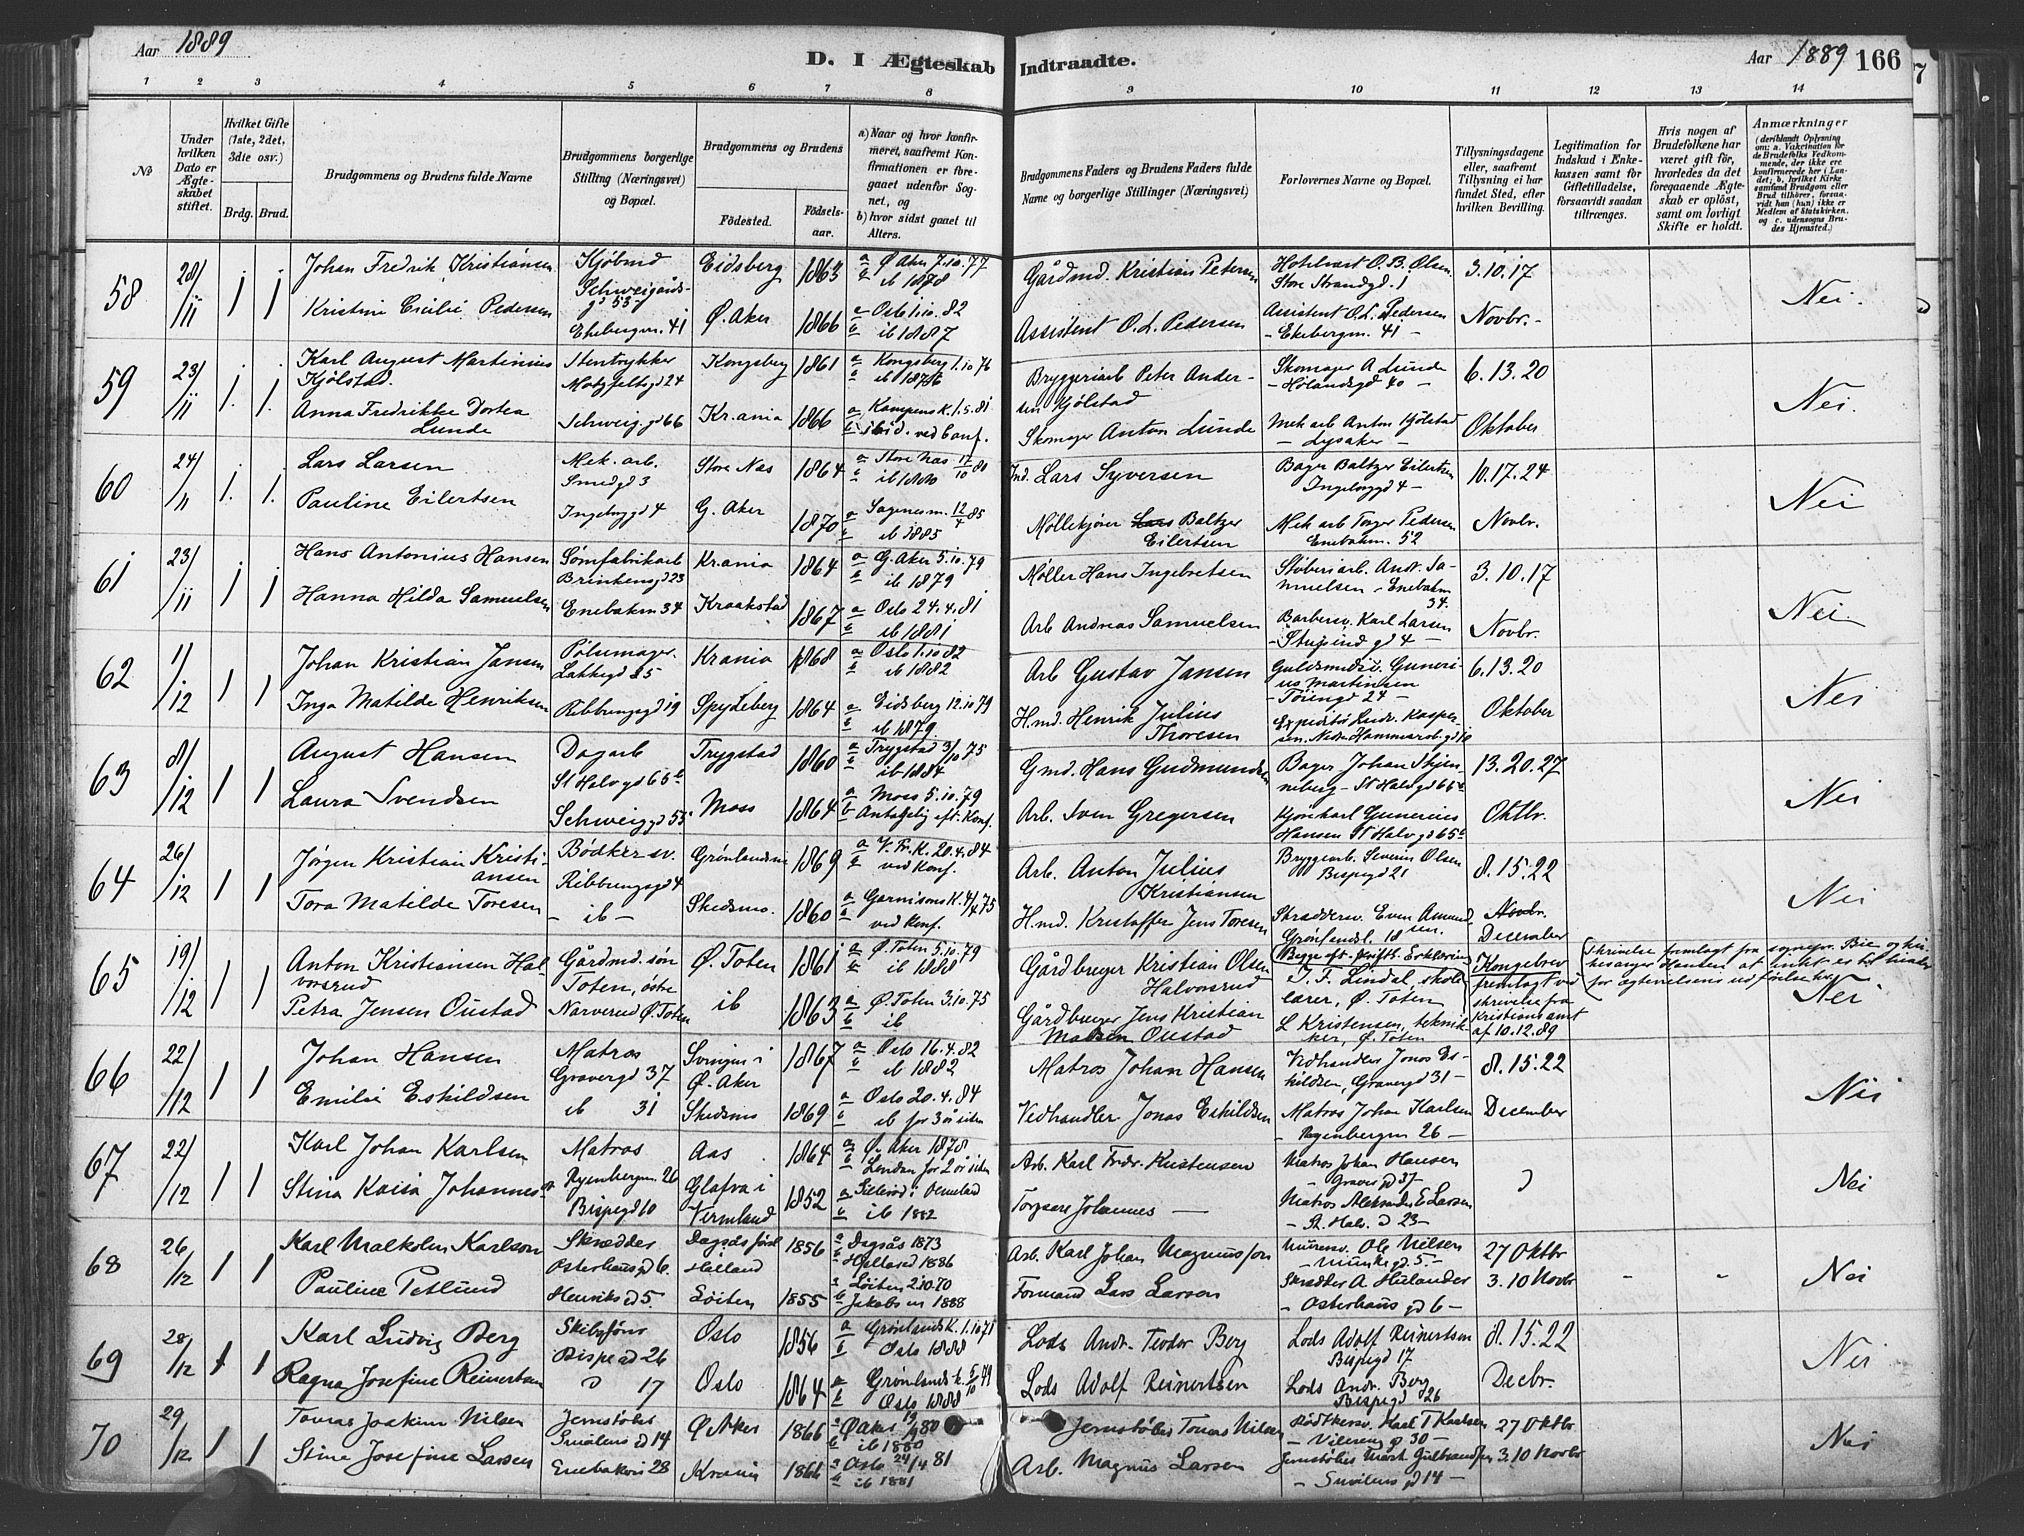 Aar 1889
D. I Ægteskab Indtraadte.
Aar 1889 166
1 2 3 4 5 6 7 8 9 10 11 12 13 14
No
Under hvilken Dato er Ægteskabet stiftet.
Hvilket Gifte (1ste, 2det, 3die osv.)
Brdg. Brud.
Brudgommens og Brudens fulde Navne
Brudgommens borgerlige Stilling (Næringsvei) og Bopæl.
Brudgommens og Brudens
Fødested.
Fødselsaar.
a) Naar og hvor konfirmeret, saafremt Konfirmationen er foregaaet udenfor Sognet, og
b) hvor sidst gaaet til Alters.
Brudgommens Faders og Brudens Faders fulde Navne og borgerlige Stillinger (Næringsvei)
Forlovernes Navne og Bopæl.
Tillysningsdagene eller, saafremt Tillysning ei har fundet Sted, efter hvilken Bevilling.
Legitimation for Indskud i Enkekassen samt for Giftetilladelse, forsaavidt saadan tiltrænges.
Hvis nogen af Brudefolkene har været gift før, hvorledes da det foregaaende Ægteskab er opløst, samt om lovligt Skifte er holdt.
Anmærkninger
58 28/11 1 1 Johan Fredrik Kristiansen Eidsberg 1863 a Ø. Aker 7.10.77 b ib 1878 Gårdmd. Kristian Petersen Hotelvært O. B. Olsen Store Strandgd. 1 3.10.17
Kristine Cecilie Pedersen Ekebergm. 41 Ø. Aker 1866 a Oslo 1.10.82 b ib 1887 Assistent O. L. Pedersen Assistent O. L. Pedersen – Ekebergm. 41 – Novbr. Nei.
59 23/11 1. 1. Karl August Martinius Kjølstad. Stentrykker Motzfeltsgd 24 Kongsberg 1861 a Kongsberg 1.10.76 b ib 1876 Bryggeriarb Peter Andersen Kjølstad Skomager A Lunde – Hølandsgd 40 – 6.13.20
Anna Fredrikke Dortea Lunde Schweig.gd 66 Kr.ania 1866 a Kampens K. 1.5.81 b ibid. ved Conf. Skomager Anton Lunde Mek arb Anton Kjølstad – Lysaker – Oktober Nei.
60 24/11 1. 1. Lars Larsen Mek. arb. Smedgd 3 Store Nas 1864 a Store Nas 17/10 80 b ib 1880 Ind. Lars Syversen Bager Baltzer Eilertsen Ingeborggd 4 – 10.17.24
Pauline Eilertsen Ingeborggd 4 G. Aker 1870 a Sagenes m. 12/4 85 b ib 1885 Møllekjører Baltzer Eilertsen Mek arb Torger Pedersen Enebakm. 52 Novbr. Nei
61 23/11 1 1 Hans Antonius Hansen Sømfabrikarb Brinkensgd 23 Kr.ania 1864 a G. Aker 5.10.79 b ib 1879 Møller Hans Ingebretsen Støberiarb. Andr. Samuelsen – Enebakm 34. 3.10.17
Hanna Hilda Samuelsen Enebakm 34 Kraakstad 1867 a Oslo 24.4.81 b ib 1881 Arb Andreas Samuelsen Barbersv. Karl Larsen – Stupindgd 4 – Novbr. Nei
62 1/12 1 1 Johan Kristian Jansen Pølsemager. Lakkegd 25 Krania 1868 a Oslo 1.10.82 b ib 1882 Arb Gustav Jansen Guldsmedsv. Gunerius Martinsen – Tøiengd 24 – 6.13.20
Inga Matilde Henriksen Ribbungsgd 19 Spydeberg 1864 a Eidsberg 12.10.79 b ib 1879 H.md. Henrik Julius Thoresen Oktober Nei
63 8/12 1 1 August Hansen Dagarb St Halvgd 65 b Trygstad 1860 a Trygstad 3/10 75 b ib 1884 Gmd. Hans Gudmundsen Bager Johan Skjenneberg – St Halvgd 65 b 13.20.27
Laura Svendsen Schweiggd 55 Moss 1864 a Moss 5.10.79 b Antagelig eft. Konf. Arb. Sven Gregersen Kjørekarl Gunerius Hansen St Halvgd 65 b Oktbr. Nei
64 26/12 1 1 Jørgen Kristian Kristiansen Bødkersv. Ribbungsgd 4 Grønlandsm 1869 a V. Fr. K. 20.4.84 ved Konf. Arb. Anton Julius Kristiansen Bryggearb. Severin Olsen Bispegd 21 8.15.22
Tora Matilde Toresen – ib – Skedsmo. 1860 a Garnisons K. 4/4 75 ved Konf. H.md. Kristoffer Jens Toresen Skræddersv. Even Amundsen. Grønlandsl. 18 Novbr. December Nei
65 19/12 1 1 Anton Kristiansen Halvorsrud Gårdmd. søn Toten, østre Ø. Toten 1861 a Ø. Toten 5.10.79 b ib 1888 Gårdbruger Kristian Olsen Halvorsrud Begge eft. skriftl. Erklæring J. F. Lindal, skolelærer, Ø. Toten Kongebrev fremlagt ved skrivelse fra Kristians amt af 10.12.89
Petra Jensen Oustad Narverud Ø. Toten ib 1863 a Ø. Toten 3.10.75 b ib Gårdbruger Jens Kristian Madsen Oustad L Kristensen, tekniker, Ø. Toten Skrivelse fremlagt fra sognepr. Bie og kirkesanger Hansen at intet er til hinder for ægtevielsens udførelse. Nei
66 22/12 1 1 Johan Hansen Matros Gravergd 37 Svingen i Ø. Aker 1867 a Oslo 16.4.82 b ib 1882 Matros Johan Hansen Vedhandler Jonas Eskildsen, Gravergd 31 – 8.15.22
Emilie Eskildsen ib 31 Skedsmo 1869 a Oslo 20.4.84 b ib for 3 år siden Vedhandler Jonas Eskildsen Matros Johan Karlsen – Ryenbergm 26 – December Nei
67 22/12 1 1 Karl Johan Karlsen Matros Ryenbergm. 26 Aas 1864 a Ø. Aker 1878. b London for 2 år siden Arb. Karl Fredr. Kristensen Matros Johan Hansen – Gravergd 37 –
Stina Kaisa Johannes Bispegd 10 Glafva i Vermland 1852 b ib 1882 Torpare Johannes – Matros Aleksander E Larsen – St. Halv. gd 23 – Nei
68 26/12 1 1 Karl Malkolm Karlson Skrædder Osterhausgd 6. 1856 a Dagsås 1873 b 1886 Arb. Karl Johan Magnusson Murersv. Ole Nilsen – Munkegd 5 – 27 Oktbr
Pauline Petlund Henriksgd 5. Løiten 1855 a Løiten 2.10.70 b Jakobs m 1888 Formand Lars Larsen Skrædder A. – Osterhausgd 6 – 3.10 Novbr Nei
69 28/12 1 1 Karl Ludvig Berg Skibsfører Bispegd 26 Oslo 1856 a Grønlands K. 1.10.71 b Oslo 1888 Lods Andr. Teodor Berg Lods Adolf Reinertsen Bispegd 17 8.15.22
Ragna Josefine Reinertsen 17 Oslo 1864 a Grønlands K. 5/10 79 b Oslo 1888 Lods Adolf Reinertsen Lods Andr. Berg Bispegd 26 Decbr. Nei
70 29/12 1 1 Tomas Joakim Nilsen Jernstøber Smålensgd 14 Ø Aker 1866 a Ø Aker 80 b ib 1880 Jernstøber Tomas Nilsen Karl T Karlsen – 30 – 27 Oktbr
Stine Josefine Larsen Enebakvei 28 Krania 1866 a Oslo 24/4 81 b ib 1881 Arb. Magnus Larsen Jernstøber – Smålensgd 14 – 3.10 Novbr Nei